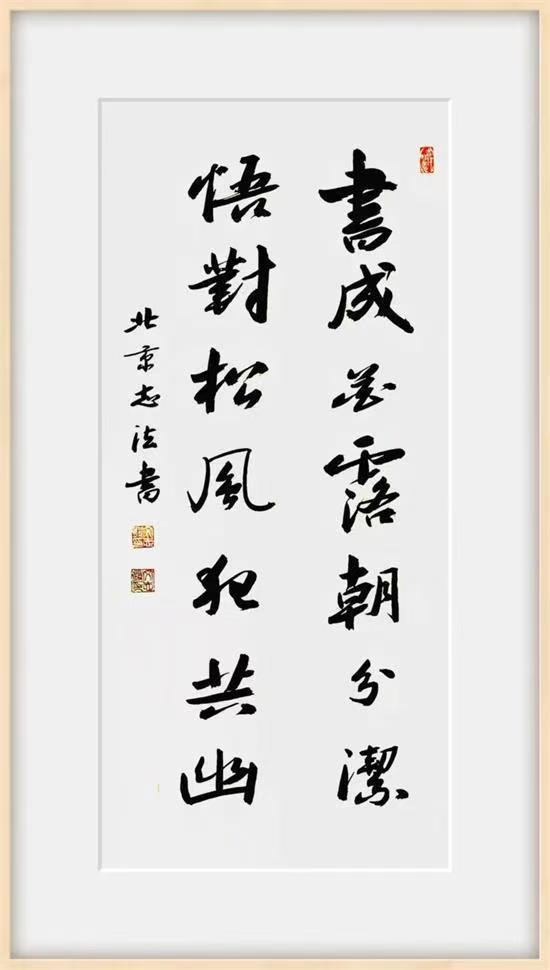 書成花露朝分潔
悟對松風夜共幽
北京志法書